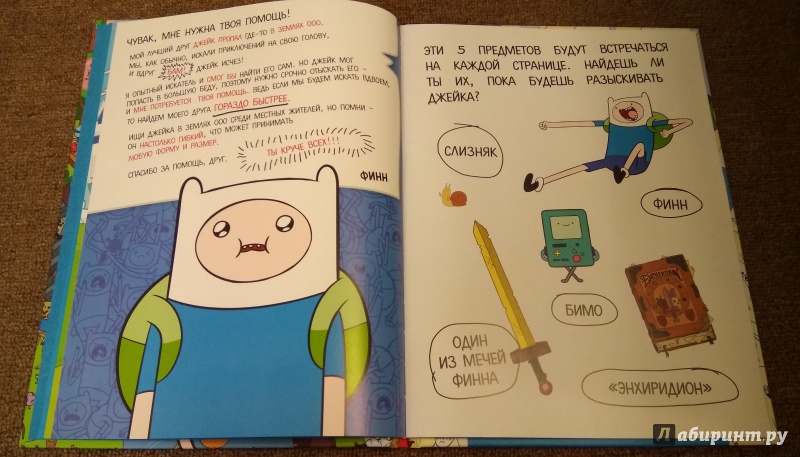 ЧУВАК, МНЕ НУЖНА ТВОЯ ПОМОЩЬ!
МОЙ ЛУЧШИЙ ДРУГ ДЖЕЙК ПРОПАЛ ГДЕ-ТО В ЗЕМЛЯХ ООО.
МЫ, КАК ОБЫЧНО, ИСКАЛИ ПРИКЛЮЧЕНИЙ НА СВОЮ ГОЛОВУ,
И ВДРУГ БАМ! ДЖЕЙК ИСЧЕЗ!
Я ОПЫТНЫЙ ИСКАТЕЛЬ И СМОГ БЫ НАЙТИ ЕГО САМ. НО ДЖЕЙК МОГ
ПОПАСТЬ В БОЛЬШУЮ БЕДУ, ПОЭТОМУ НУЖНО СРОЧНО ОТЫСКАТЬ ЕГО –
И МНЕ ПОТРЕБУЕТСЯ ТВОЯ ПОМОЩЬ. ВЕДЬ ЕСЛИ МЫ БУДЕМ ИСКАТЬ ВДВОЕМ,
ТО НАЙДЕМ МОЕГО ДРУГА ГОРАЗДО БЫСТРЕЕ.
ИЩИ ДЖЕЙКА В ЗЕМЛЯХ ООО СРЕДИ МЕСТНЫХ ЖИТЕЛЕЙ, НО ПОМНИ –
ОН НАСТОЛЬКО ГИБКИЙ, ЧТО МОЖЕТ ПРИНИМАТЬ
ЛЮБУЮ ФОРМУ И РАЗМЕР.
СПАСИБО ЗА ПОМОЩЬ, ДРУГ.
ТЫ КРУЧЕ ВСЕХ!!!
ФИНН
ЭТИ 5 ПРЕДМЕТОВ БУДУТ ВСТРЕЧАТЬСЯ
НА КАЖДОЙ СТРАНИЦЕ. НАЙДЕШЬ ЛИ
ТЫ ИХ, ПОКА БУДЕШЬ РАЗЫСКИВАТЬ
ДЖЕЙКА?
СЛИЗНЯК
ФИНН
БИМО
ОДИН
ИЗ МЕЧЕЙ
ФИННА
«ЭНХИРИДИОН»
Лабиринт.ру